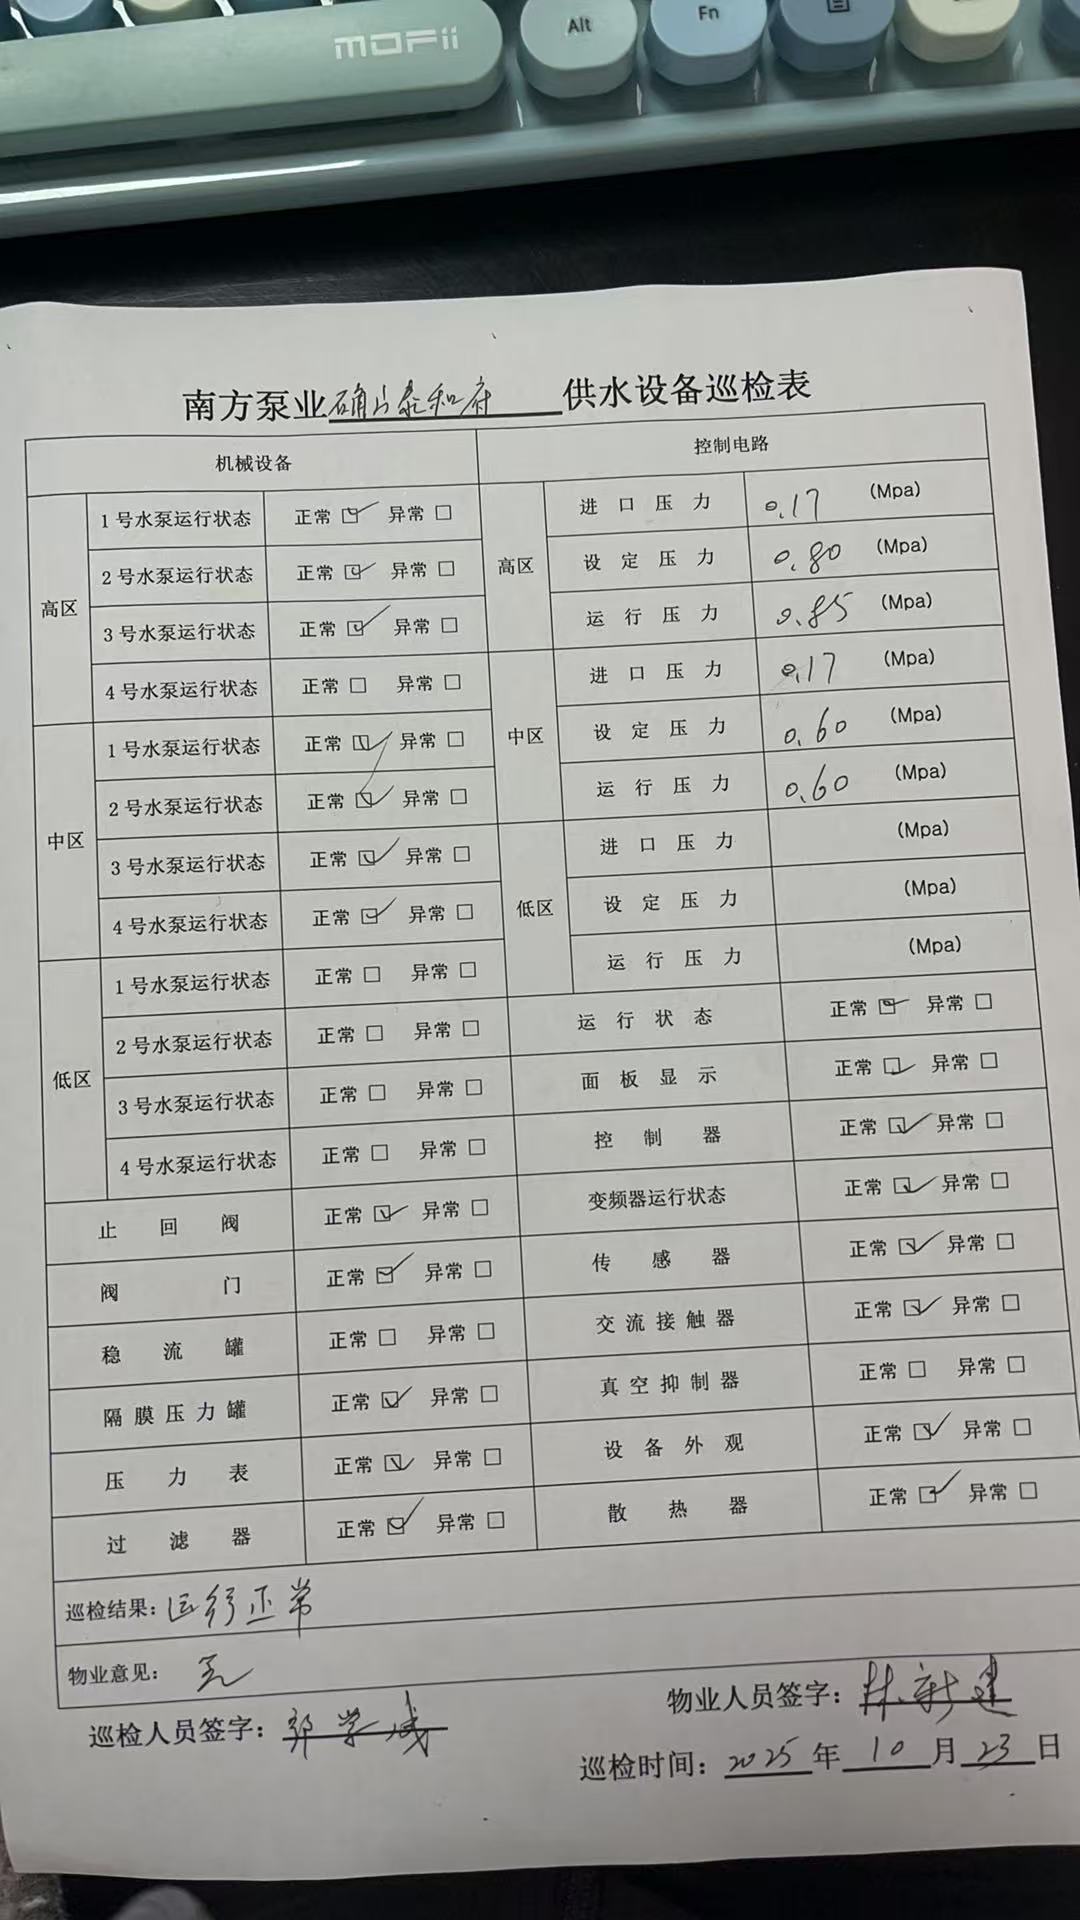 MOFii
Alt
Fn
南方泵业确山泰和府供水设备巡检表
机械设备 控制电路
高区 1号水泵运行状态 正常☑ 异常□ 高区 进口压力 0.17 (Mpa)
2号水泵运行状态 正常☑ 异常□ 设定压力 0.80 (Mpa)
3号水泵运行状态 正常☑ 异常□ 运行压力 0.85 (Mpa)
4号水泵运行状态 正常□ 异常□ 中区 进口压力 0.17 (Mpa)
中区 1号水泵运行状态 正常☑ 异常□ 设定压力 0.60 (Mpa)
2号水泵运行状态 正常☑ 异常□ 运行压力 0.60 (Mpa)
3号水泵运行状态 正常☑ 异常□ 低区 进口压力 (Mpa)
4号水泵运行状态 正常☑ 异常□ 设定压力 (Mpa)
低区 1号水泵运行状态 正常□ 异常□ 运行压力 (Mpa)
2号水泵运行状态 正常□ 异常□ 运行状态 正常☑ 异常□
3号水泵运行状态 正常□ 异常□ 面板显示 正常☑ 异常□
4号水泵运行状态 正常□ 异常□ 控制器 正常☑ 异常□
止回阀 正常☑ 异常□ 变频器运行状态 正常☑ 异常□
阀门 正常☑ 异常□ 传感器 正常☑ 异常□
稳流罐 正常□ 异常□ 交流接触器 正常☑ 异常□
隔膜压力罐 正常☑ 异常□ 真空抑制器 正常□ 异常□
压力表 正常☑ 异常□ 设备外观 正常☑ 异常□
过滤器 正常☑ 异常□ 散热器 正常☑ 异常□
巡检结果:运行正常
物业意见: 无
巡检人员签字:郭学成 物业人员签字:林新建
巡检时间:2025年10月23日